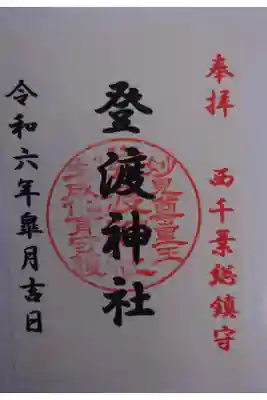 奉拝 西千葉総鎮守
登渡神社
令和六年皐月吉日